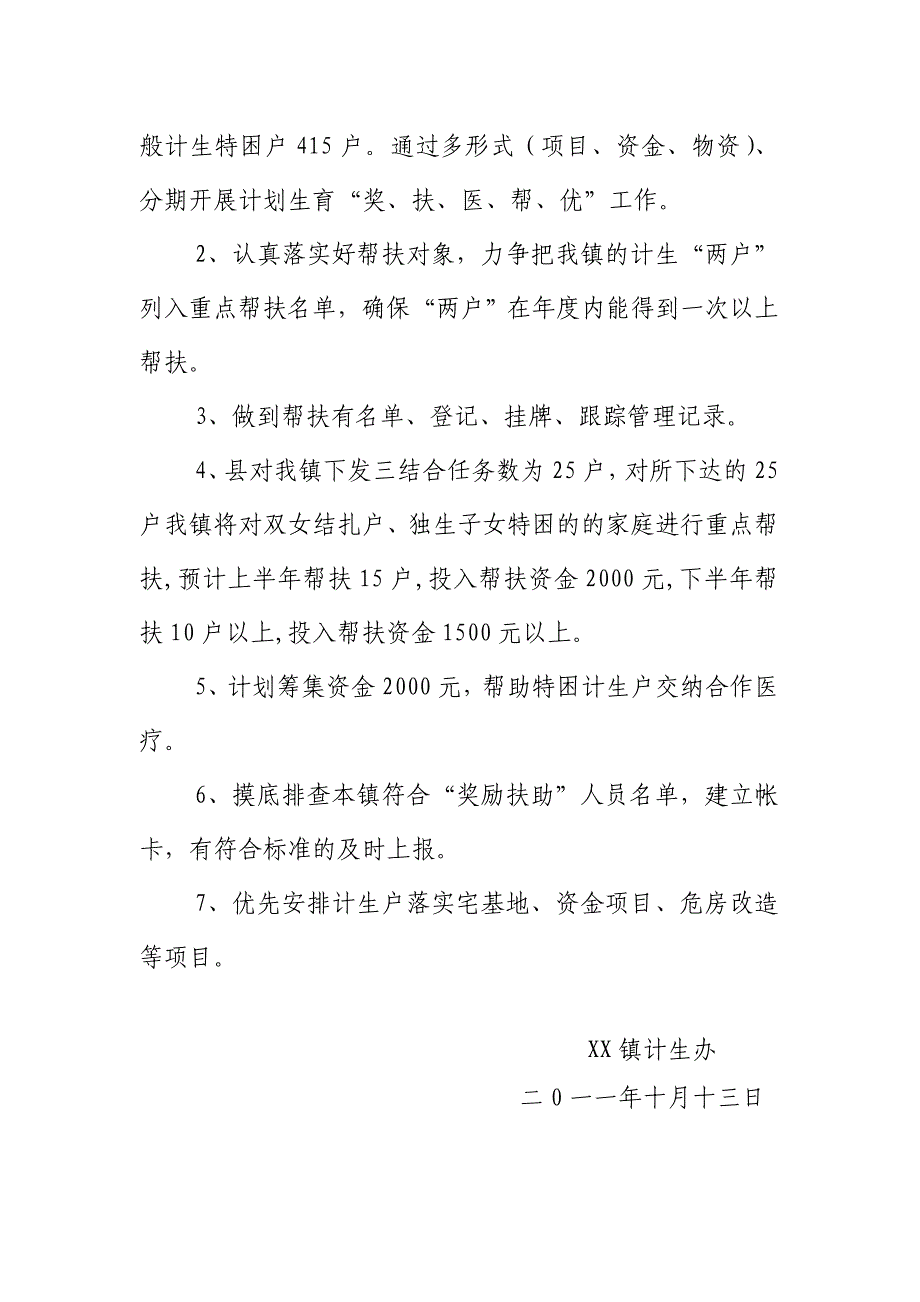 般计生特困户 415 户。通过多形式（项目、资金、物资）、
分期开展计划生育“奖、扶、医、帮、优”工作。
2、认真落实好帮扶对象，力争把我镇的计生“两户”
列入重点帮扶名单，确保“两户”在年度内能得到一次以上
帮扶。
3、做到帮扶有名单、登记、挂牌、跟踪管理记录。
4、县对我镇下发三结合任务数为 25 户，对所下达的 25
户我镇将对双女结扎户、独生子女特困的的家庭进行重点帮
扶,预计上半年帮扶 15 户,投入帮扶资金 2000 元,下半年帮
扶 10 户以上,投入帮扶资金 1500 元以上。
5、计划筹集资金 2000 元，帮助特困计生户交纳合作医
疗。
6、摸底排查本镇符合“奖励扶助”人员名单，建立帐
卡，有符合标准的及时上报。
7、优先安排计生户落实宅基地、资金项目、危房改造
等项目。
XX 镇计生办
二 0 一一年十月十三日